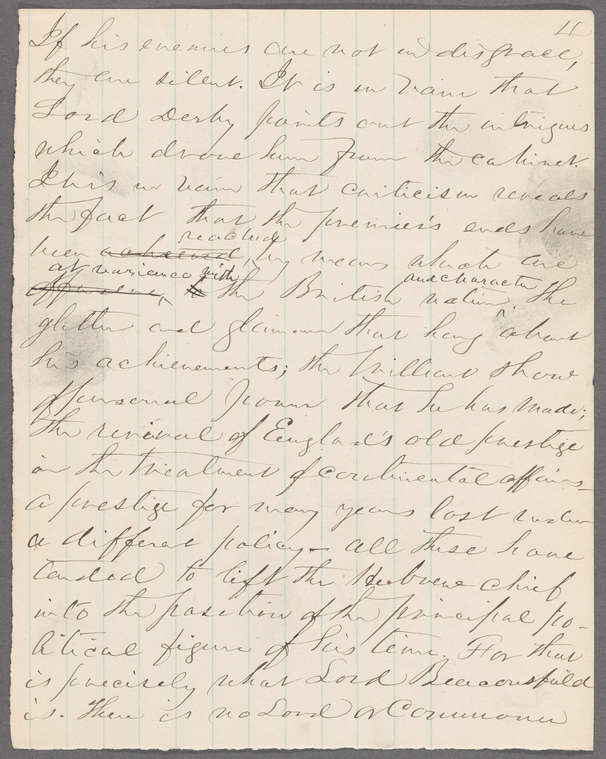 4
If his enemies are not in disgrace,
they are silent. It is in vain that
Lord Derby points out the intrigues
which drove him from the cabinet.
It is in vain that criticism reveals
the fact that the premier's ends have
reached
been achieved, by means which are
at variance with and character
to the British nation. The
glitter and glamour that hang about
his achievements; the brilliant show
of personal power that he has made;
the revival of England's old prestige
in the treatment of continental affairs—
a prestige for many years lost under
a different policy— all these have
tended to lift the Hebrew chief
into the position of the principal po-
litical figure of his time. For that
is precisely what Lord Beaconsfield
is. There is no Lord or Commoner